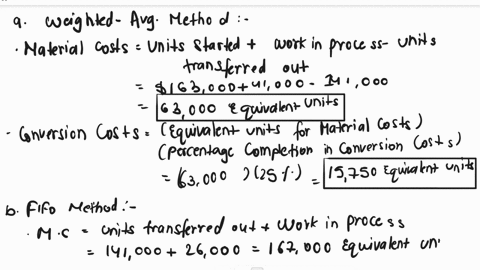 a. Weighted-Avg. Method :-
· Material Costs = Units Started + Work in process - Units
transferred out
= $163,000+41,000 - 141,000
= 63,000 Equivalent Units
- Conversion Costs = (Equivalent units for Material Costs)
(Percentage Completion in Conversion Costs)
= (63,000)(25%) = 15,750 Equivalent Units
b. Fifo Method :-
· M.C = Units transferred out + Work in process
= 141,000 + 26,000 = 167,000 Equivalent un